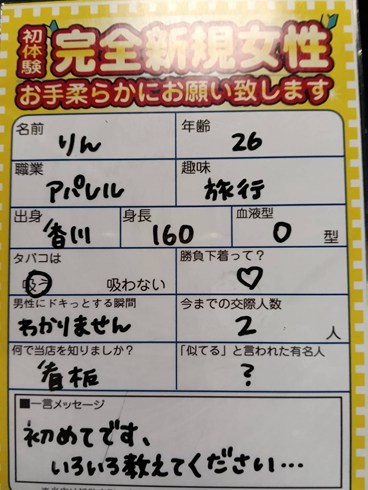 初体験
完全新規女性
お手柔らかにお願い致します
名前 りん
年齢 26
職業 アパレル
趣味 旅行
出身 香川
身長 160
血液型 O 型
タバコは 吸う 吸わない
勝負下着って? ♡
男性にドキっとする瞬間 わかりません
今までの交際人数 2 人
何で当店を知りましたか? 看板
「似てる」と言われた有名人 ?
■一言メッセージ
初めてです、
いろいろ教えてください…